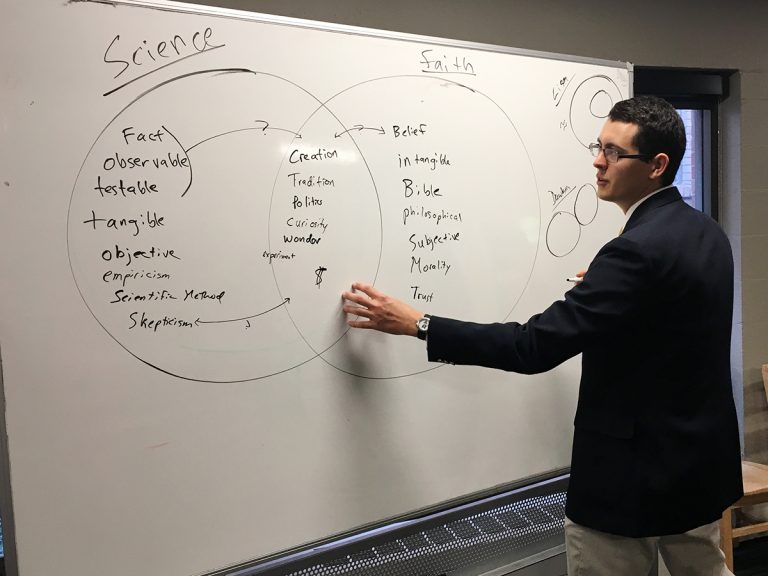 Science
Fact
observable
testable
tangible
objective
empiricism
Scientific Method
Skepticism
?
Creation
Tradition
Politics
Curiosity
Wonder
experiment
$
Faith
Belief
intangible
Bible
philosophical
Subjective
Morality
Trust